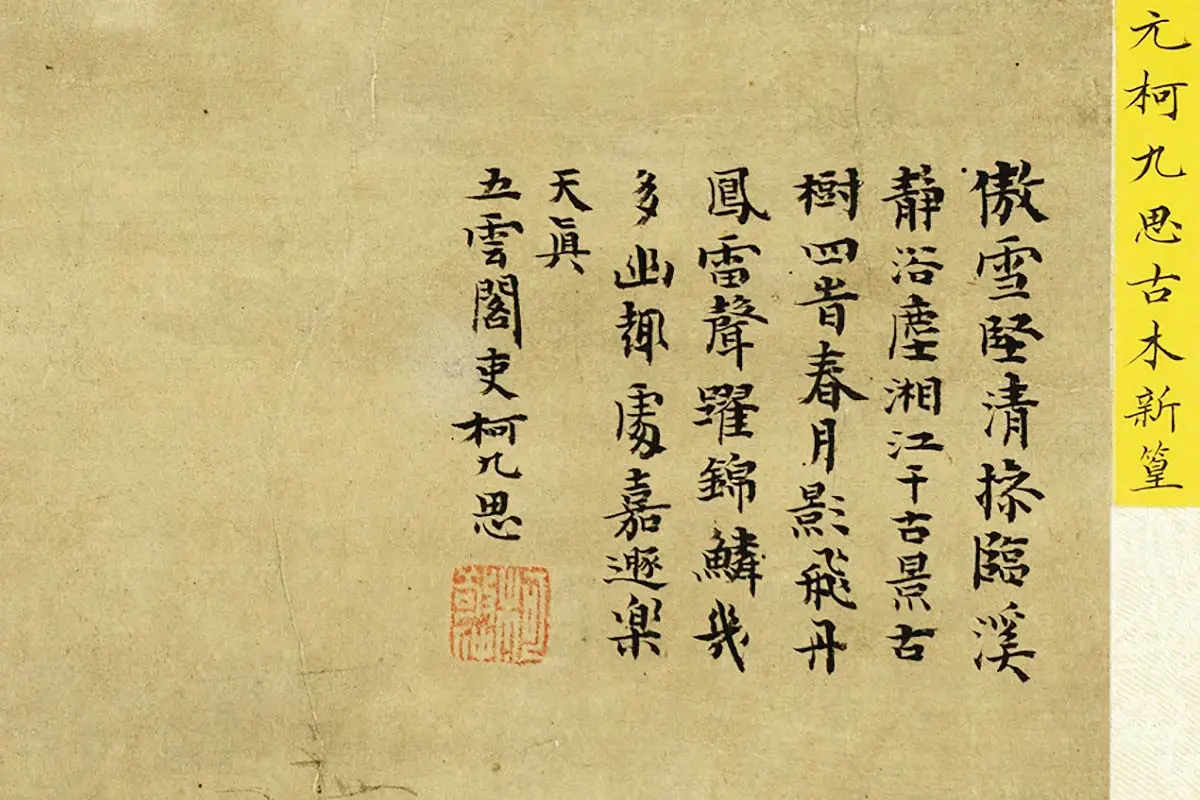 元柯九思古木新篁
傲雪堅清操臨溪
靜浴塵湘江千古景古
樹四岩春月影飛丹
鳳雷聲躍錦鱗幾
多幽趣處嘉遯樂
天真
五雲閣吏柯九思